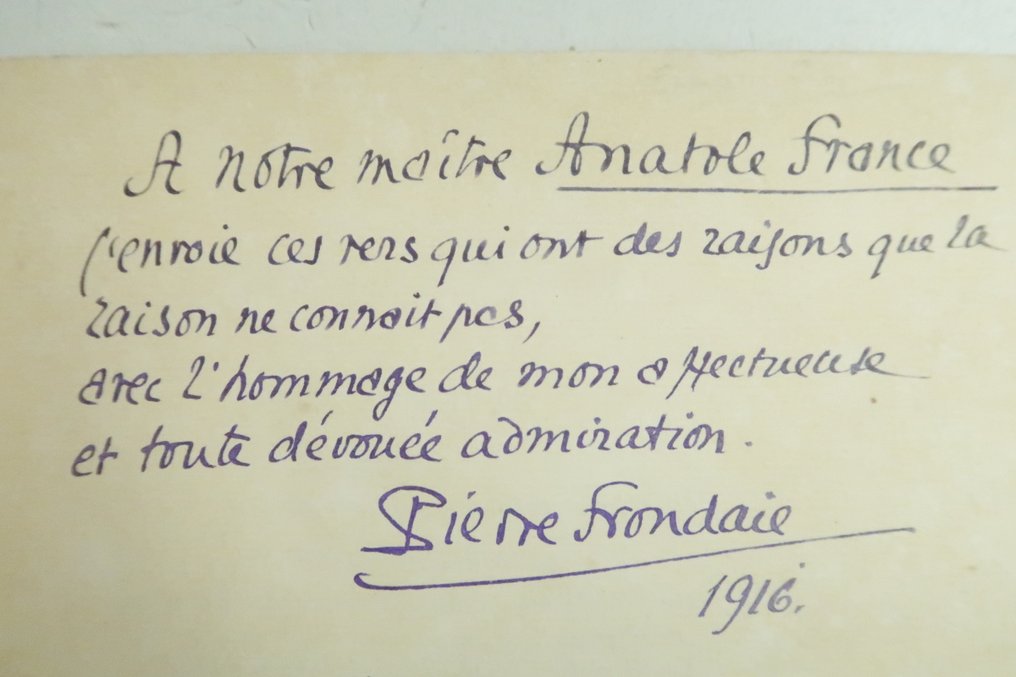 A notre maître Anatole France
j'envoie ces vers qui ont des raisons que la
raison ne connait pas,
avec l'hommage de mon affectueuse
et toute dévouée admiration.
Pierre Frondaie
1916.